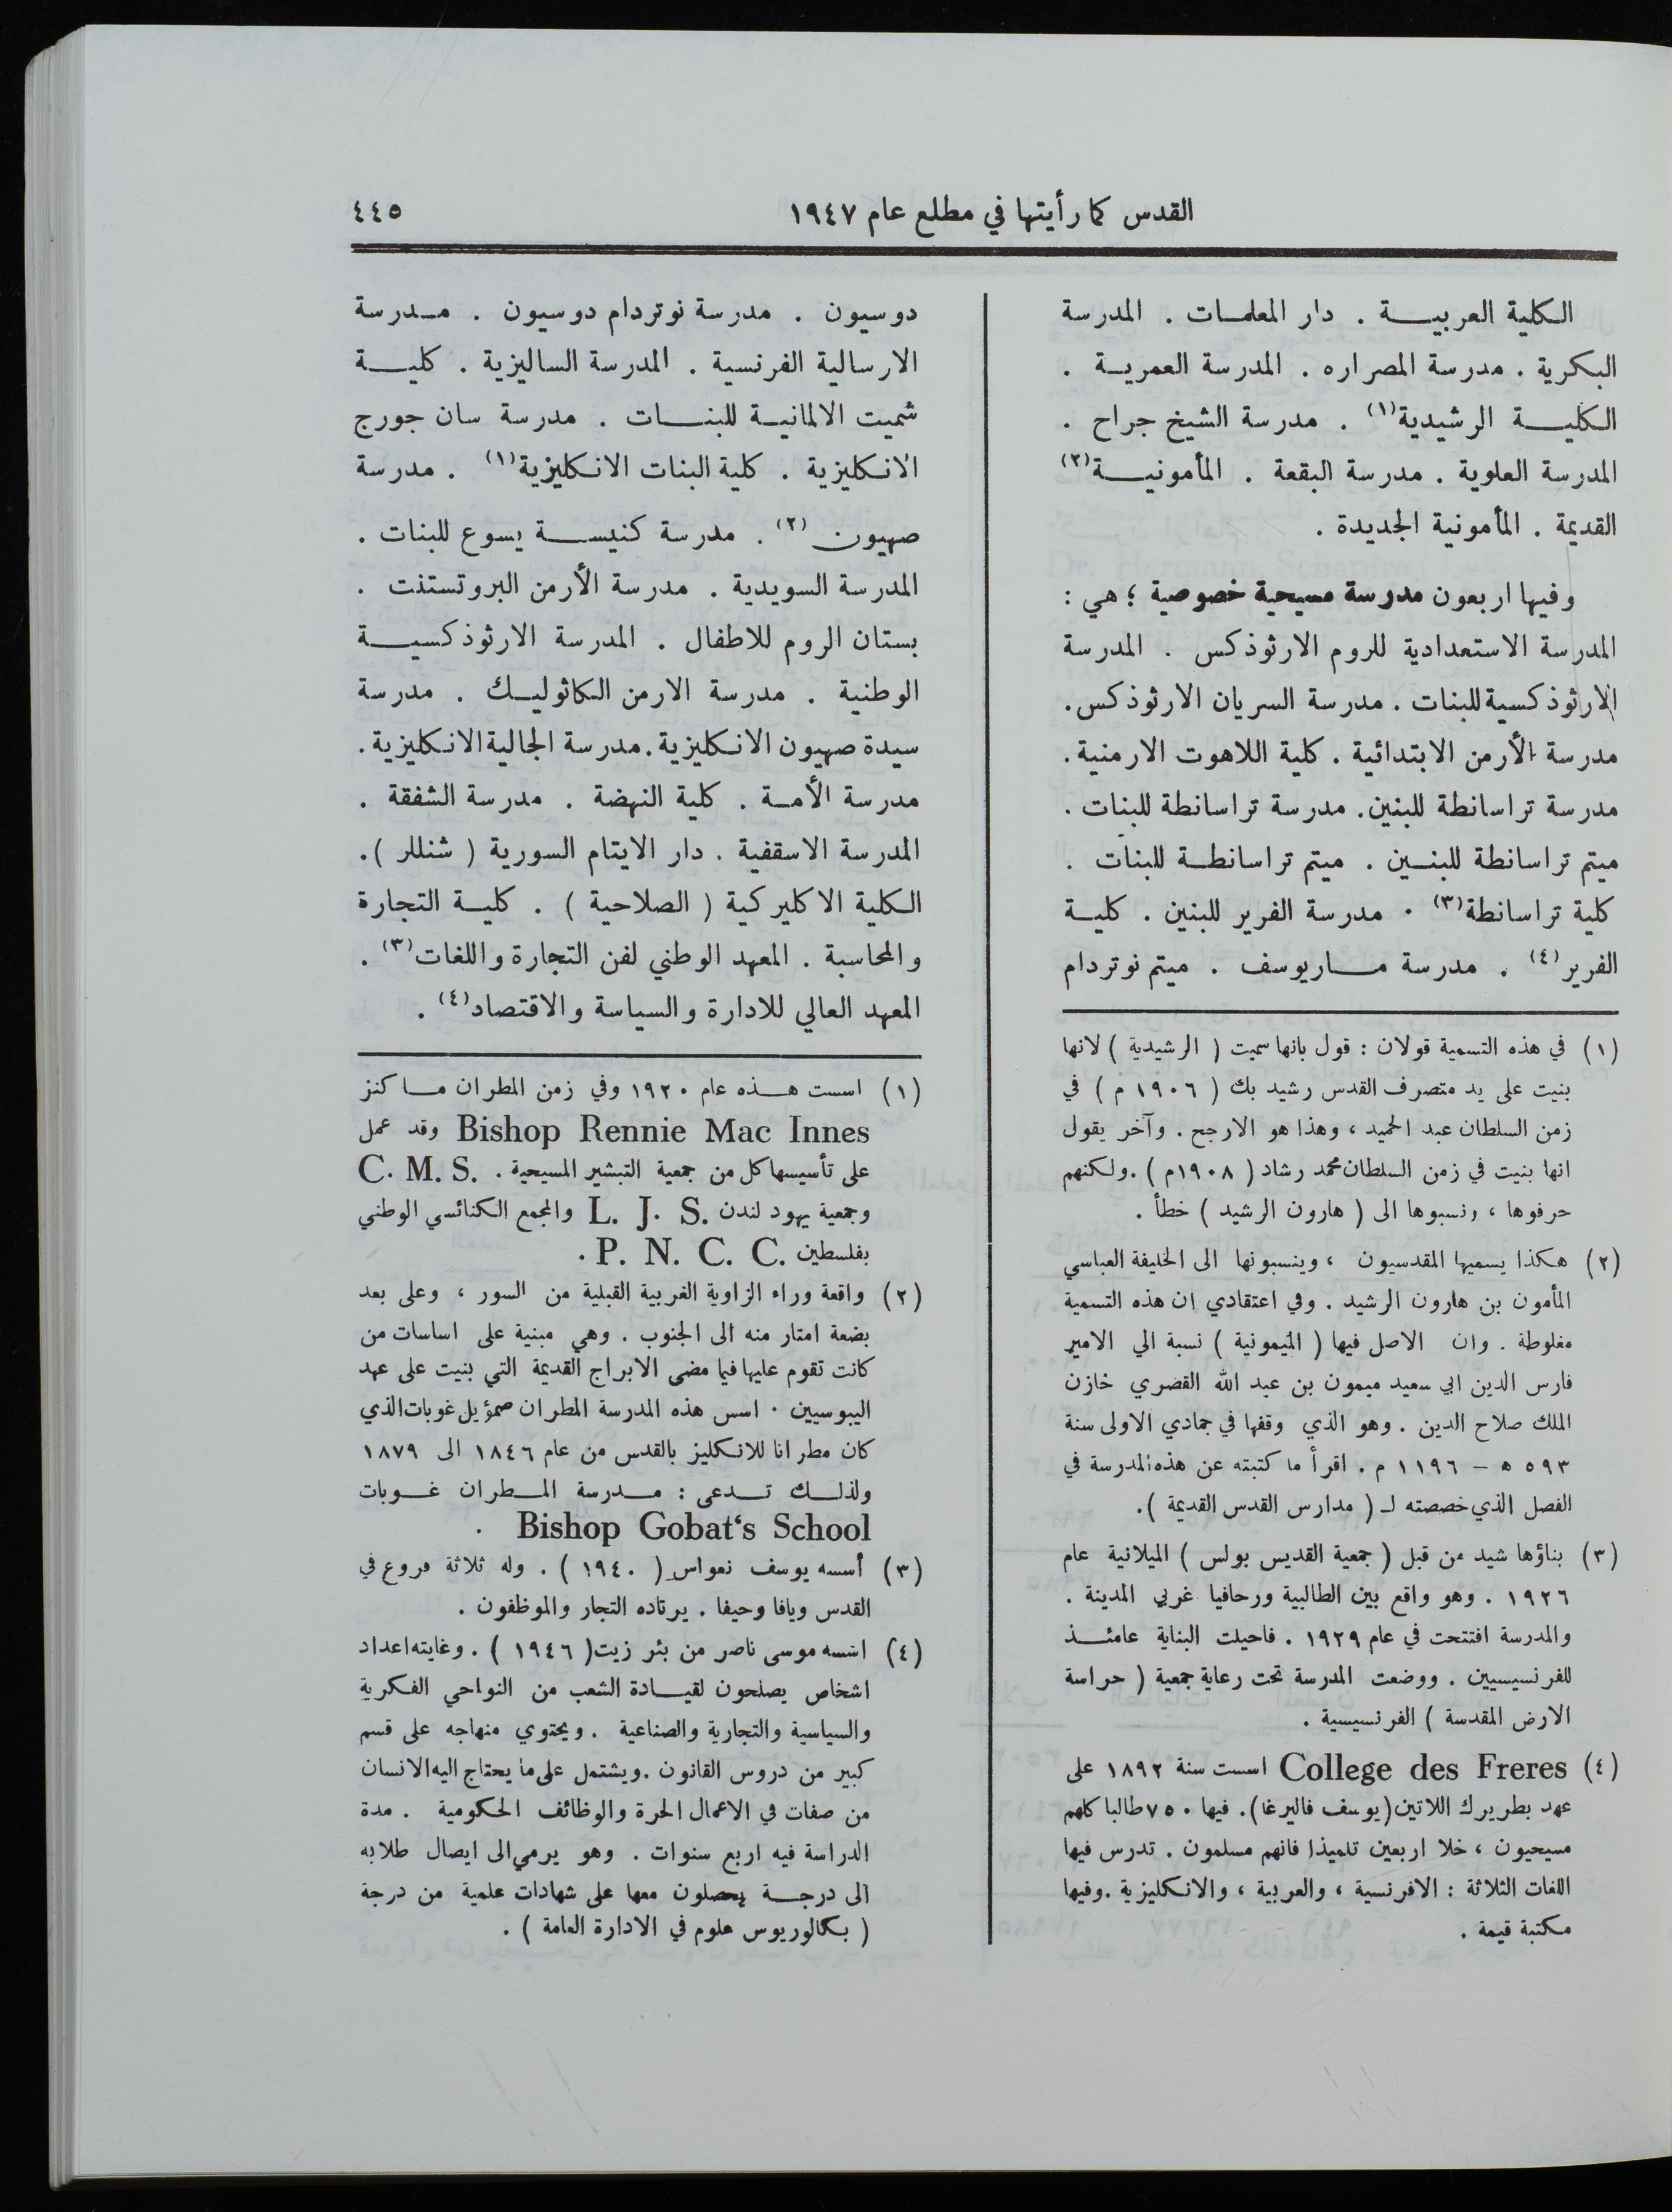 القدس كما رأيتها في مطلع عام ١٩٤٧
٤٤٥
الكلية العربية . دار المعلمات . المدرسة
البكرية . مدرسة المصراره . المدرسة العمرية .
الكلية الرشيدية(١) . مدرسة الشيخ جراح .
المدرسة العلوية . مدرسة البقعة . المأمونية(٢)
القديمة . المأمونية الجديدة .
وفيها اربعون مدرسة مسيحية خصوصية ؛ هي :
المدرسة الاستعدادية للروم الارثوذكس . المدرسة
الارثوذكسية للبنات . مدرسة السريان الارثوذكس .
مدرسة الأرمن الابتدائية . كلية اللاهوت الارمنية .
مدرسة تراسانطة للبنين . مدرسة تراسانطة للبنات .
ميتم تراسانطة للبنين . ميتم تراسانطة للبنات .
كلية تراسانطة(٣) . مدرسة الفرير للبنين . كلية
الفرير(٤) . مدرسة مار يوسف . ميتم نوتردام
(١) في هذه التسمية قولان : قول بانها سميت ( الرشيدية ) لانها
بنيت على يد متصرف القدس رشيد بك ( ١٩٠٦ م ) في
زمن السلطان عبد الحميد ، وهذا هو الارجح . وآخر يقول
انها بنيت في زمن السلطان محمد رشاد ( ١٩٠٨م ) . ولكنهم
حرفوها ، ونسبوها الى ( هارون الرشيد ) خطأ .
(٢) هكذا يسميها المقدسيون ، وينسبونها الى الخليفة العباسي
المأمون بن هارون الرشيد . وفي اعتقادي ان هذه التسمية
مغلوطة . وان الاصل فيها ( الميمونية ) نسبة الي الامير
فارس الدين ابي سعيد ميمون بن عبد الله القصري خازن
الملك صلاح الدين . وهو الذي وقفها في جمادي الاولى سنة
٥٩٣ ه – ١١٩٦ م . اقرأ ما كتبته عن هذه المدرسة في
الفصل الذي خصصته لـ ( مدارس القدس القديمة ) .
(٣) بناؤها شيد من قبل ( جمعية القديس بولس ) الميلانية عام
١٩٢٦ . وهو واقع بين الطالبية ورحافيا غربي المدينة .
والمدرسة افتتحت في عام ١٩٢٩ . فاحيلت البناية عامئذ
للفرنسيسيين . ووضعت المدرسة تحت رعاية جمعية ( حراسة
الارض المقدسة ) الفرنسيسية .
(٤) College des Freres اسست سنة ١٨٩٢ على
عهد بطريرك اللاتين ( يوسف فاليرغا ) . فيها ٧٥٠ طالبا كلهم
مسيحيون ، خلا اربعين تلميذا فانهم مسلمون . تدرس فيها
اللغات الثلاثة : الافرنسية ، والعربية ، والانكليزية . وفيها
مكتبة قيمة .
دوسيون . مدرسة نوتردام دوسيون . مدرسة
الارسالية الفرنسية . المدرسة الساليزية . كلية
شميت الالمانية للبنات . مدرسة سان جورج
الانكليزية . كلية البنات الانكليزية(١) . مدرسة
صهيون (٢) . مدرسة كنيسة يسوع للبنات .
المدرسة السويدية . مدرسة الأرمن البروتستنت .
بستان الروم للاطفال . المدرسة الارثوذكسية
الوطنية . مدرسة الارمن الكاثوليك . مدرسة
سيدة صهيون الانكليزية . مدرسة الجالية الانكليزية .
مدرسة الأمة . كلية النهضة . مدرسة الشفقة .
المدرسة الاسقفية . دار الايتام السورية ( شنللر ) .
الكلية الاكليركية ( الصلاحية ) . كلية التجارة
والمحاسبة . المعهد الوطني لفن التجارة واللغات(٣) .
المعهد العالي للادارة والسياسة والاقتصاد(٤) .
(١) اسست هذه عام ١٩٢٠ وفي زمن المطران ما كنز
Bishop Rennie Mac Innes وقد عمل
على تأسيسها كل من جمعية التبشير المسيحية . C. M. S.
وجمعية يهود لندن L. J. S. والمجمع الكنائسي الوطني
بفلسطين P. N. C. C. .
(٢) واقعة وراء الزاوية الغربية القبلية من السور ، وعلى بعد
بضعة امتار منه الى الجنوب . وهي مبنية على اساسات من
كانت تقوم عليها فيما مضى الابراج القديمة التي بنيت على عهد
اليبوسيين . اسس هذه المدرسة المطران صموئيل غوبات الذي
كان مطرانا للانكليز بالقدس من عام ١٨٤٦ الى ١٨٧٩
ولذلك تدعى : مدرسة المطران غوبات
Bishop Gobat‘s School .
(٣) أسسه يوسف نعواس ( ١٩٤٠ ) . وله ثلاثة فروع في
القدس ويافا وحيفا . يرتاده التجار والموظفون .
(٤) اسسه موسى ناصر من بئر زيت ( ١٩٤٦ ) . وغايته اعداد
اشخاص يصلحون لقيادة الشعب من النواحي الفكرية
والسياسية والتجارية والصناعية . ويحتوي منهاجه على قسم
كبير من دروس القانون . ويشتمل على ما يحتاج اليه الانسان
من صفات في الاعمال الحرة والوظائف الحكومية . مدة
الدراسة فيه اربع سنوات . وهو يرمي الى ايصال طلابه
الى درجة يحصلون معها على شهادات علمية من درجة
( بكالوريوس علوم في الادارة العامة ) .